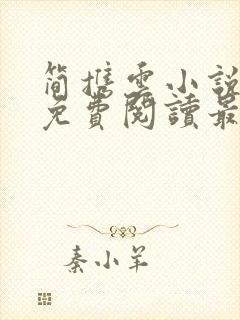 简携雲小說
免費閱讀最
秦小羊